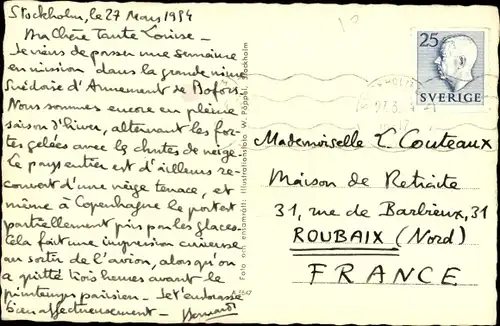 Stockholm, le 27 Mars 1954
Ma Chère Tante Louise -
Je viens de passer une semaine
en mission dans la grande usine
Suédoise d'Armement de Bofors.
Nous sommes encore en pleine
saison d'hiver, alternant les for-
tes gelées avec les chutes de neige.
Le pays entier est d'ailleurs re-
couvert d'une neige tenace, et
même à Copenhague le port est
partiellement pris par les glaces.
Cela fait une impression curieuse
au sortir de l'avion, alors qu'on
a quitté trois heures avant le
printemps parisien - Je t'embrasse
bien affectueusement - Bernard
Foto och ensamrätt: Illustrationsfoto W. Pöppel, Stockholm
A 2647
25
SVERIGE
27.3.
Mademoiselle L. Couteaux
Maison de Retraite
31, rue de Barbieux, 31
ROUBAIX (Nord)
FRANCE